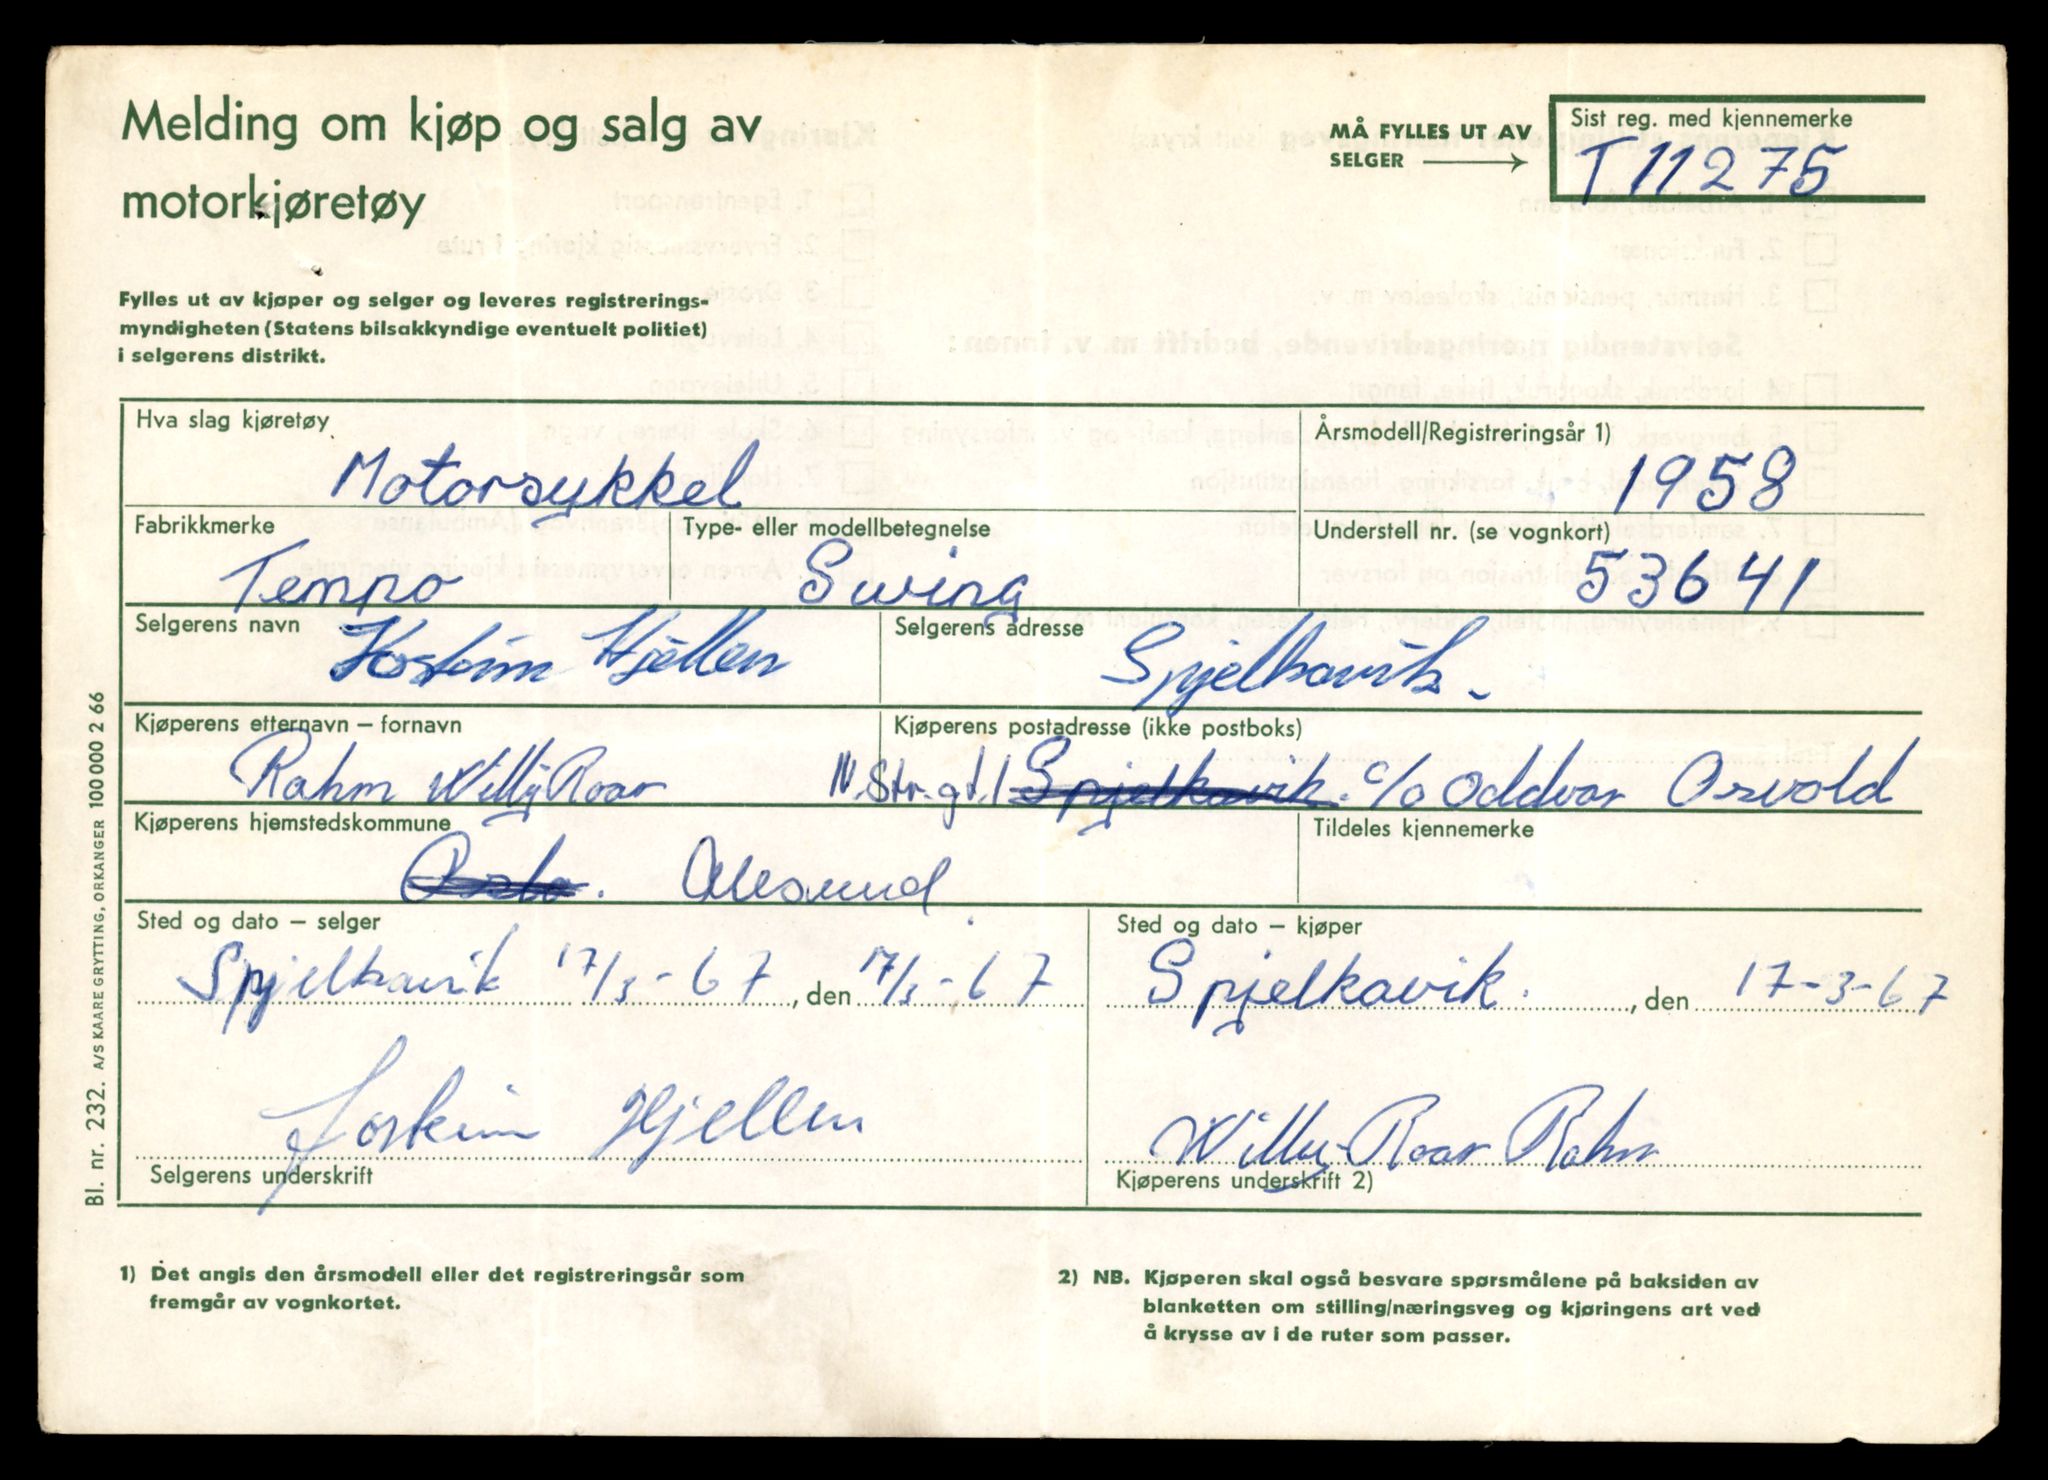 Melding om kjøp og salg av
motorkjøretøy
MÅ FYLLES UT AV
SELGER
Sist reg. med kjennemerke
T 11275
Fylles ut av kjøper og selger og leveres registrerings-
myndigheten (Statens bilsakkyndige eventuelt politiet)
i selgerens distrikt.
Hva slag kjøretøy
Motorsykkel
Årsmodell/Registreringsår 1)
1958
Fabrikkmerke
Tempo
Type- eller modellbetegnelse
Swing
Understell nr. (se vognkort)
53641
Selgerens navn
Hjellen
Selgerens adresse
Spjelkavik
Kjøperens etternavn – fornavn
Rahm Willy Roar
Kjøperens postadresse (ikke postboks)
N. Str.gt. 1 Spjelkavik. c/o Oddvar Osvold
Kjøperens hjemstedskommune
Oslo. Ålesund
Tildeles kjennemerke
Sted og dato – selger
Spjelkavik 17/3-67, den 17/3-67
Sted og dato – kjøper
Spjelkavik., den 17-3-67
Joskim Hjellen
Selgerens underskrift
Willy Roar Rahm
Kjøperens underskrift 2)
Bl. nr. 232. A/S KAARE GRYTTING, ORKANGER 100 000 2 66
1) Det angis den årsmodell eller det registreringsår som
fremgår av vognkortet.
2) NB. Kjøperen skal også besvare spørsmålene på baksiden av
blanketten om stilling/næringsveg og kjøringens art ved
å krysse av i de ruter som passer.